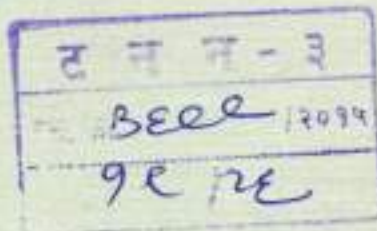 ट न न - ३
३६९९ /२०१५
१९ /२६